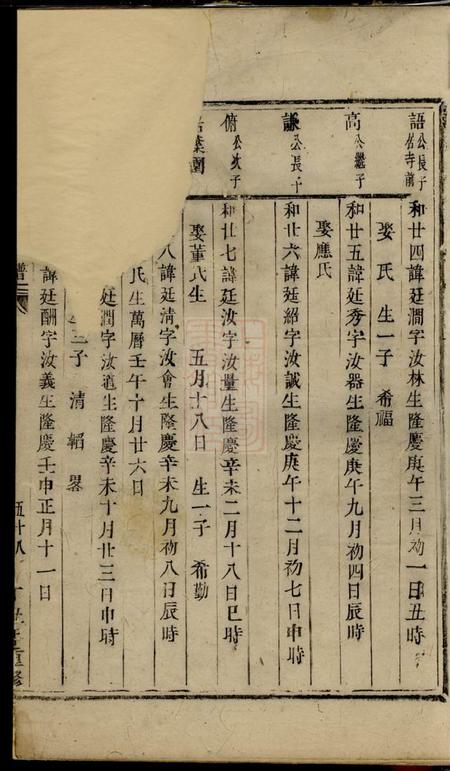 語公長子居寺前
和廿四諱廷澗字汝林生隆慶庚午三月初一日丑時
娶 氏 生一子 希福
高公繼子
和廿五諱廷秀字汝器生隆慶庚午九月初四日辰時
娶應氏
謙公長子
和廿六諱廷紹字汝誠生隆慶庚午十二月初七日申時
俯公次子
和廿七諱廷汝字汝量生隆慶辛未二月十八日巳時
娶董氏生 五月十八日 生一子 希勤
葉園
八諱廷淸字汝會生隆慶辛未九月初八日辰時
氏生萬曆壬午十月廿六日
廷潤字汝道生隆慶辛未十月廿三日申時
子 清 韜
諱廷酬字汝義生隆慶壬申正月十一日
譜
五十八
重修